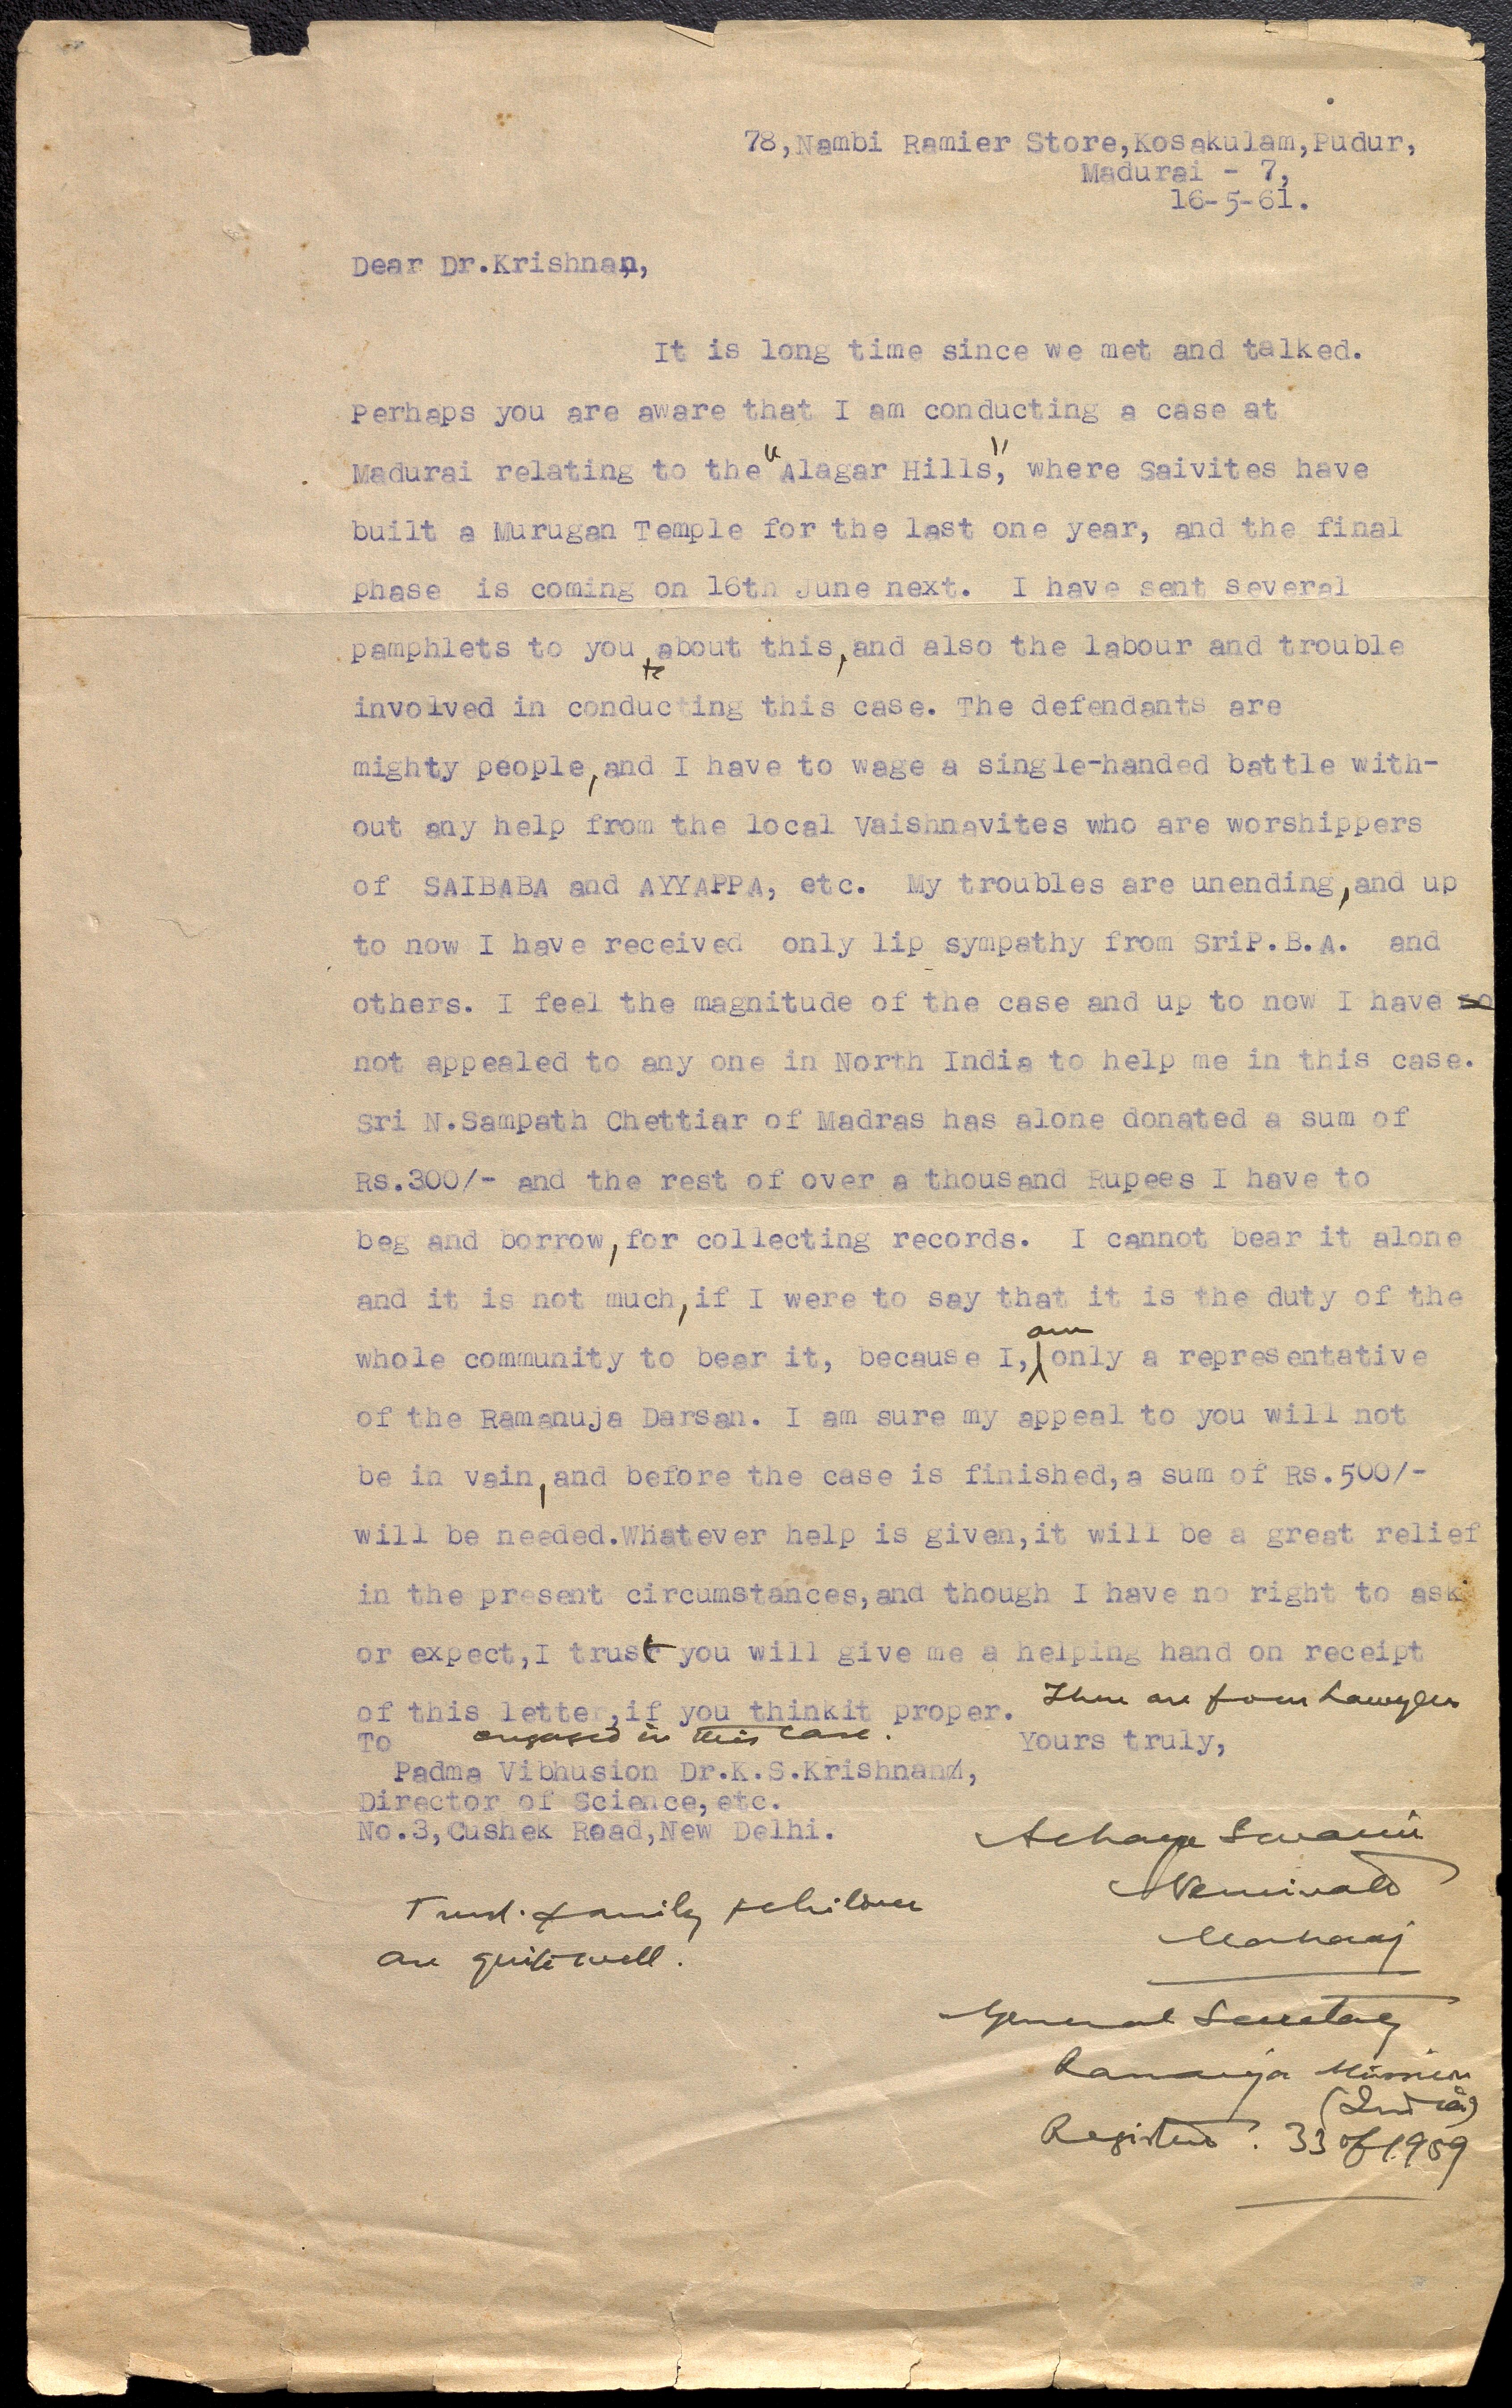 78,Nambi Ramier Store,Kosakulam,Pudur,
Madurai - 7,
16-5-61.
Dear Dr.Krishnan,
It is long time since we met and talked.
Perhaps you are aware that I am conducting a case at
Madurai relating to the "Alagar Hills", where Saivites have
built a Murugan Temple for the last one year, and the final
phase is coming on 16th June next. I have sent several
pamphlets to you about this,and also the labour and trouble
involved in conducting this case. The defendants are
mighty people,and I have to wage a single-handed battle with-
out any help from the local Vaishnavites who are worshippers
of SAIBABA and AYYAPPA, etc. My troubles are unending,and up
to now I have received only lip sympathy from SriP.B.A. and
others. I feel the magnitude of the case and up to now I have
not appealed to any one in North India to help me in this case.
Sri N.Sampath Chettiar of Madras has alone donated a sum of
Rs.300/- and the rest of over a thousand Rupees I have to
beg and borrow,for collecting records. I cannot bear it alone
and it is not much,if I were to say that it is the duty of the
whole community to bear it, because I, am only a representative
of the Ramanuja Darsan. I am sure my appeal to you will not
be in vain,and before the case is finished,a sum of Rs.500/-
will be needed.Whatever help is given,it will be a great relief
in the present circumstances,and though I have no right to ask
or expect,I trust you will give me a helping hand on receipt
of this letter,if you thinkit proper. There are four Lawyers
engaged in this case.
Yours truly,
To
Padma Vibhusion Dr.K.S.Krishnan,
Director of Science,etc.
No.3,Cushek Road,New Delhi.
Trust. family & children
are quite well.
Swami
Maharaj
General Secretary
Ramanuja Mission
(India)
Registered. 33 of 1959